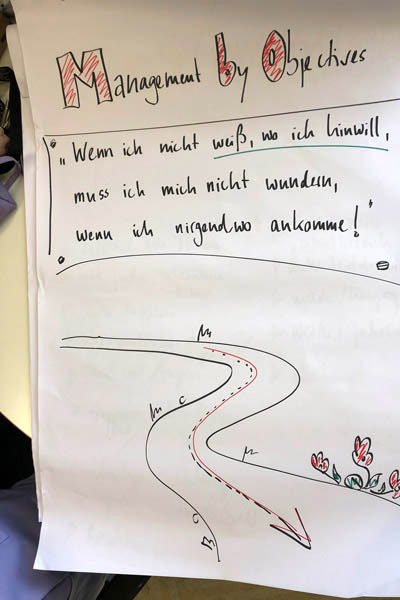 Management by Objectives
„Wenn ich nicht weiß, wo ich hinwill,
muss ich mich nicht wundern,
wenn ich nirgendwo ankomme!"